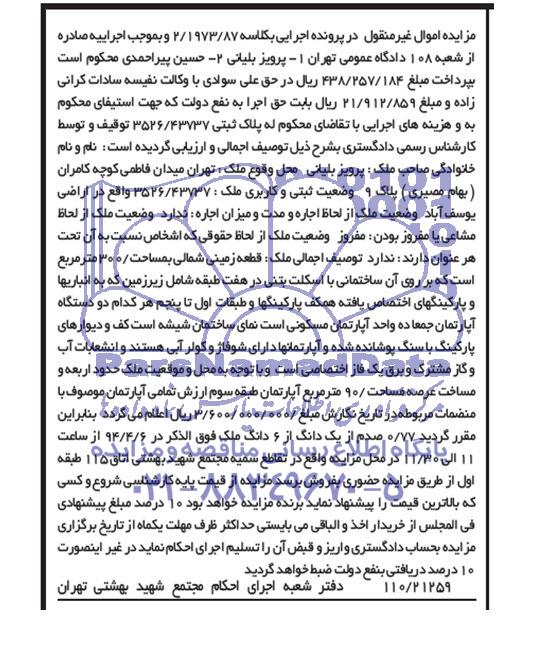 مزایده اموال غیرمنقول در پرونده اجرایی بکلاسه ۲/۱۹۷۳/۸۷ و بموجب اجراییه صادره
از شعبه ۱۰۸ دادگاه عمومی تهران ۱- پرویز بلیانی ۲- حسین پیراحمدی محکوم است
بپرداخت مبلغ ۴۳۸/۲۵۷/۱۸۴ ریال در حق علی سوادی با وکالت نفیسه سادات کرانی
زاده و مبلغ ۲۱/۹۱۲/۸۵۹ ریال بابت حق اجرا به نفع دولت که جهت استیفای محکوم
به و هزینه های اجرایی با تقاضای محکوم له پلاک ثبتی ۳۵۲۶/۴۳۷۳۷ توقیف و توسط
کارشناس رسمی دادگستری بشرح ذیل توصیف اجمالی و ارزیابی گردیده است: نام و نام
خانوادگی صاحب ملک: پرویز بلیانی محل وقوع ملک: تهران میدان فاطمی کوچه کامران
(بهام مصیری) پلاک ۹ وضعیت ثبتی و کاربری ملک: ۳۵۲۶/۴۳۷۳۷ واقع در اراضی
یوسف آباد وضعیت ملک از لحاظ اجاره و مدت و میزان اجاره: ندارد وضعیت ملک از لحاظ
مشاعی یا مفروز بودن: مفروز وضعیت ملک از لحاظ حقوقی که اشخاص نسبت به آن تحت
هر عنوان دارند: ندارد توصیف اجمالی ملک: قطعه زمینی شمالی بمساحت ۳۰۰/ مترمربع
است که بر روی آن ساختمانی با اسکلت بتنی در هفت طبقه شامل زیرزمین که به انباریها
و پارکینگهای اختصاص یافته همکف پارکینگها و طبقات اول تا پنجم هر کدام دو دستگاه
آپارتمان جمعا ده واحد آپارتمان مسکونی است نمای ساختمان شیشه است کف و دیوارهای
پارکینگ با سنگ پوشانده شده و آپارتمانها دارای شوفاژ و کولر آبی هستند و انشعابات آب
و گاز مشترک و برق یک فاز اختصاصی است و با توجه به محل و موقعیت ملک حدود اربعه و
مساحت عرصه مساحت ۹۰/ مترمربع آپارتمان طبقه سوم ارزش تمامی آپارتمان موصوف با
منضمات مربوطه در تاریخ نگارش مبلغ ۳/۶۰۰/۰۰۰/۰۰۰/ ریال اعلام می گردد بنابراین
مقرر گردید ۰/۷۷ صدم از یک دانگ از ۶ دانگ ملک فوق الذکر در ۹۴/۴/۶ از ساعت
۱۱ الی ۱۱/۳۰ در محل مزایده واقع در تقاطع سمیه مجتمع شهید بهشتی اتاق ۱۱۵ طبقه
اول از طریق مزایده حضوری بفروش برسد مزایده از قیمت پایه کارشناسی شروع و کسی
که بالاترین قیمت را پیشنهاد نماید برنده مزایده خواهد بود ۱۰ درصد مبلغ پیشنهادی
فی المجلس از خریدار اخذ و الباقی می بایستی حداکثر ظرف مهلت یکماه از تاریخ برگزاری
مزایده بحساب دادگستری واریز و قبض آن را تسلیم اجرای احکام نماید در غیر اینصورت
۱۰ درصد دریافتی بنفع دولت ضبط خواهد گردید
۱۱۰/۲۱۲۵۹ دفتر شعبه اجرای احکام مجتمع شهید بهشتی تهران
ParsNamadData
پایگاه اطلاع رسانی مناقصه و مزایده
۰۲۱-۸۸۳۴۹۶۷۰-۵